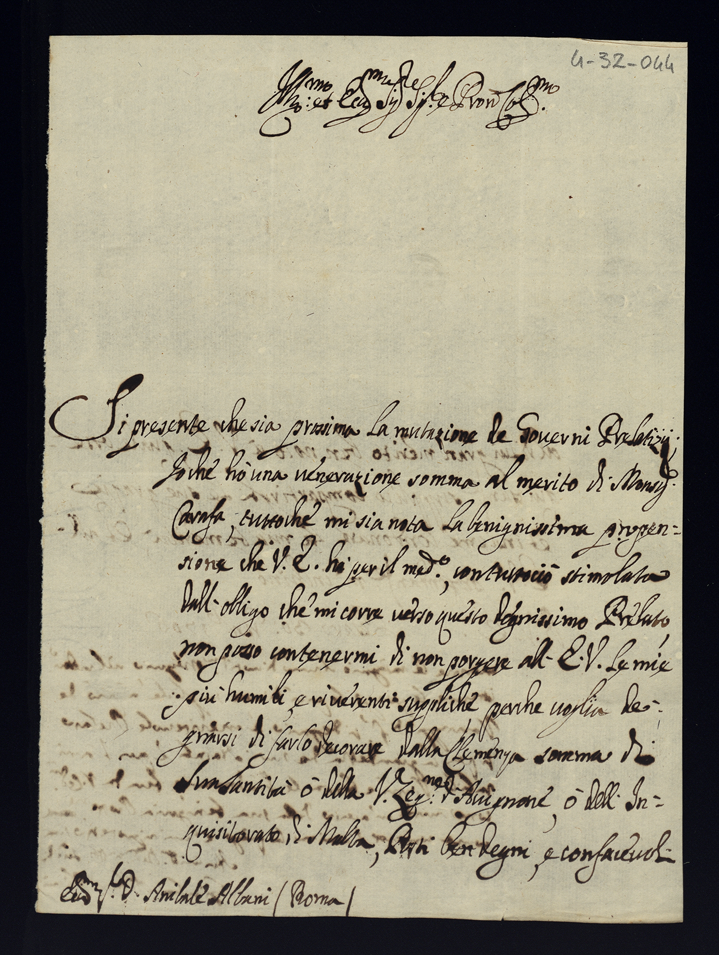 4-32-044
Ill.mo et Ecc.mo Sig.re Sig.r e Pron Col.mo
Si presente che sia prossima la mutazione de Governi Prelatizij.
Io che hò una venerazione somma al merito di Monsig.
Carafa, tuttoche mi sia nota la benignissima propen=
sione che V. E. hà per il med.o, contuttociò stimolata
dall'obligo che mi corre verso questo degnissimo Prelato
non posso contenermi di non porgere all'E. V. le mie
più humili, e riverenti suppliche perche voglia de=
gnarsi di farlo decorare dalla Clemenza somma di
Sua Santità ò della V. Leg.ne d'Avignone, ò dell'In=
quisitorato di Malta, Posti ben degni, e confacevoli
S.r D. Anibale Albani (Roma)